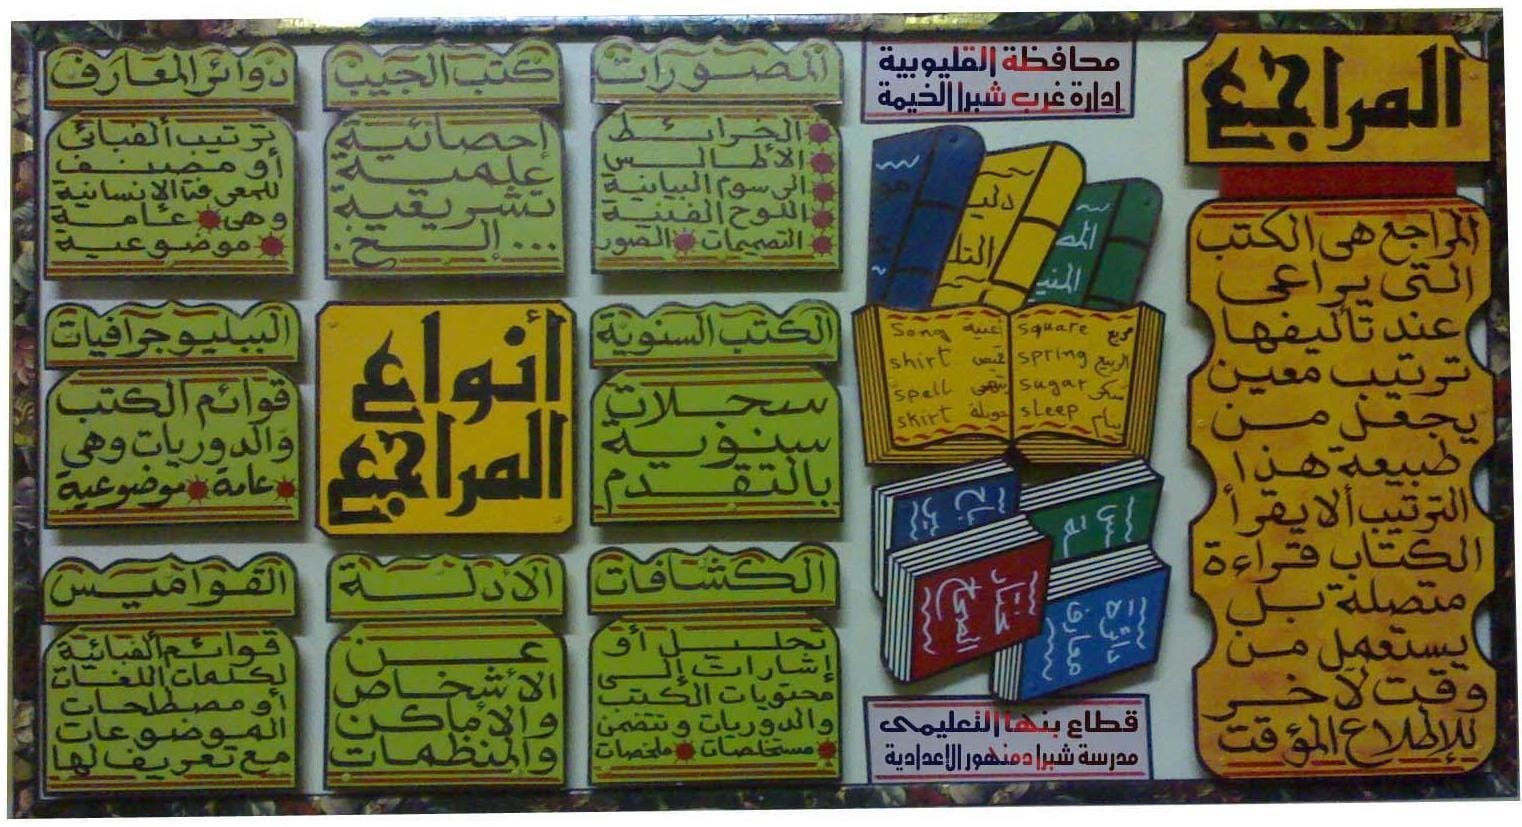 المراجع
المراجع هى الكتب
التى يراعى
عند تأليفها
ترتيب معين
يجعل من
طبيعة هذا
الترتيب ألا يقرأ
الكتاب قراءة
متصلة بل
يستعمل من
وقت لآخر
للإطلاع المؤقت
محافظة القليوبية
إدارة غرب شبرا الخيمة
دليل
التل
المص
المنير
Song أغنية
shirt قميص
spell يتهجى
skirt جونلة
square مربع
spring الربيع
sugar سكر
sleep ينام
مختار
الصحاح
دائرة
معارف
قطاع بنها التعليمى
مدرسة شبرا دمنهور الإعدادية
المصورات
الخرائط
الأطالس
الرسوم البيانية
اللوح الفنية
التصميمات الصور
كتب الجيب
إحصائية
علمية
تشريعية
... إلخ.
دوائر المعارف
ترتيب ألفبائى
أو مصنف
للمعرفة الإنسانية
وهى عامة
موضوعية
الكتب السنوية
سجلات
سنوية
بالتقدم
أنواع
المراجع
الببليوجرافيات
قوائم الكتب
والدوريات وهى
عامة موضوعية
الكشافات
تحليل أو
إشارات إلى
محتويات الكتب
والدوريات وتتضمن
مستخلصات ملخصات
الأدلة
عن
الأشخاص
والأماكن
والمنظمات
القواميس
قوائم ألفبائية
لكلمات اللغات
أو مصطلحات
الموضوعات
مع تعريف لها